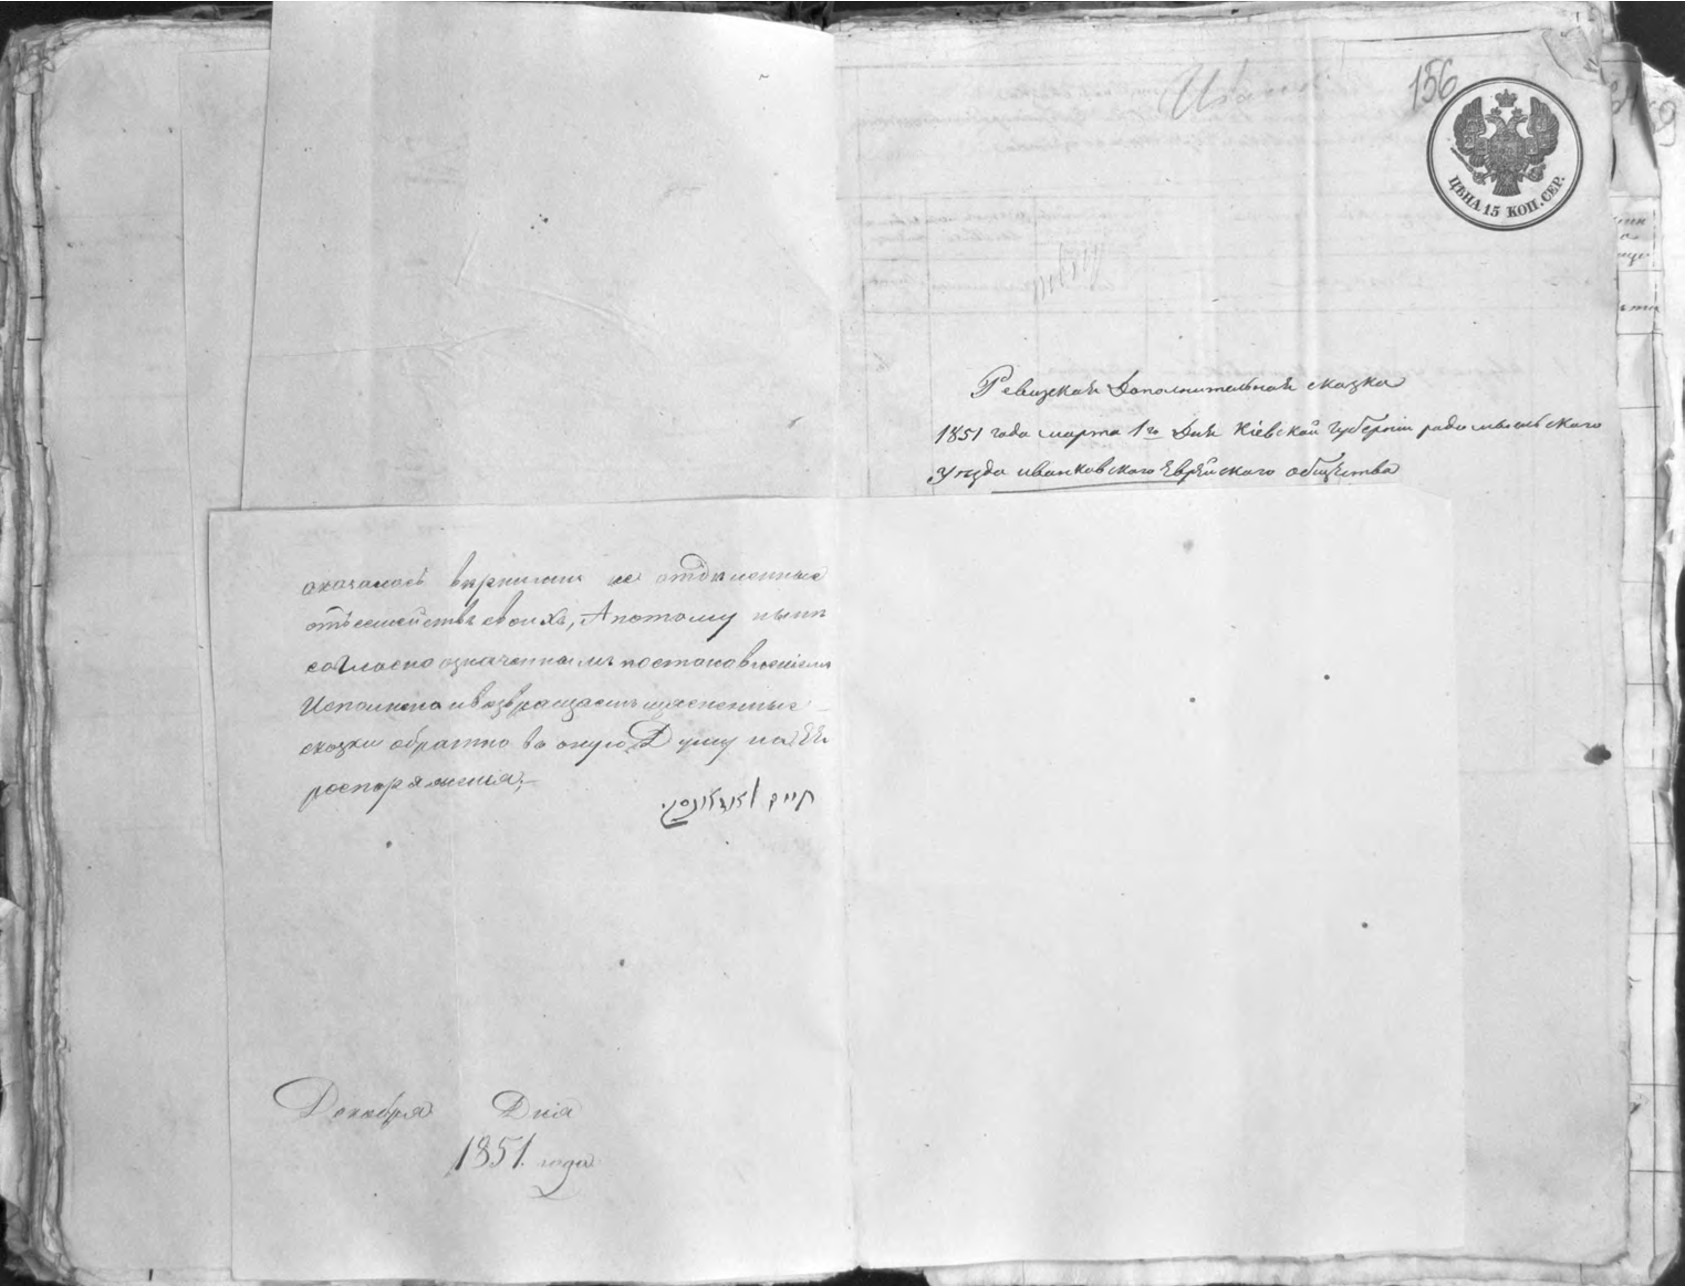 156
ЦѢНА 15 КОП. СЕР.
Ревизская Дополнительная сказка
1851 года марта 1го Дня Кіевской Губерніи радомысльскаго
Уѣзда иванковского Еврейского общества
оказалось вѣрными не отдѣленные
отъ семействъ своихъ, А потому нынѣ
согласно означеннымъ постановленіемъ
Исполнено и возвращаетъ
сказки обратно во оную Думу на Ея
роспоряженія;
Декабря Дня
1851 года